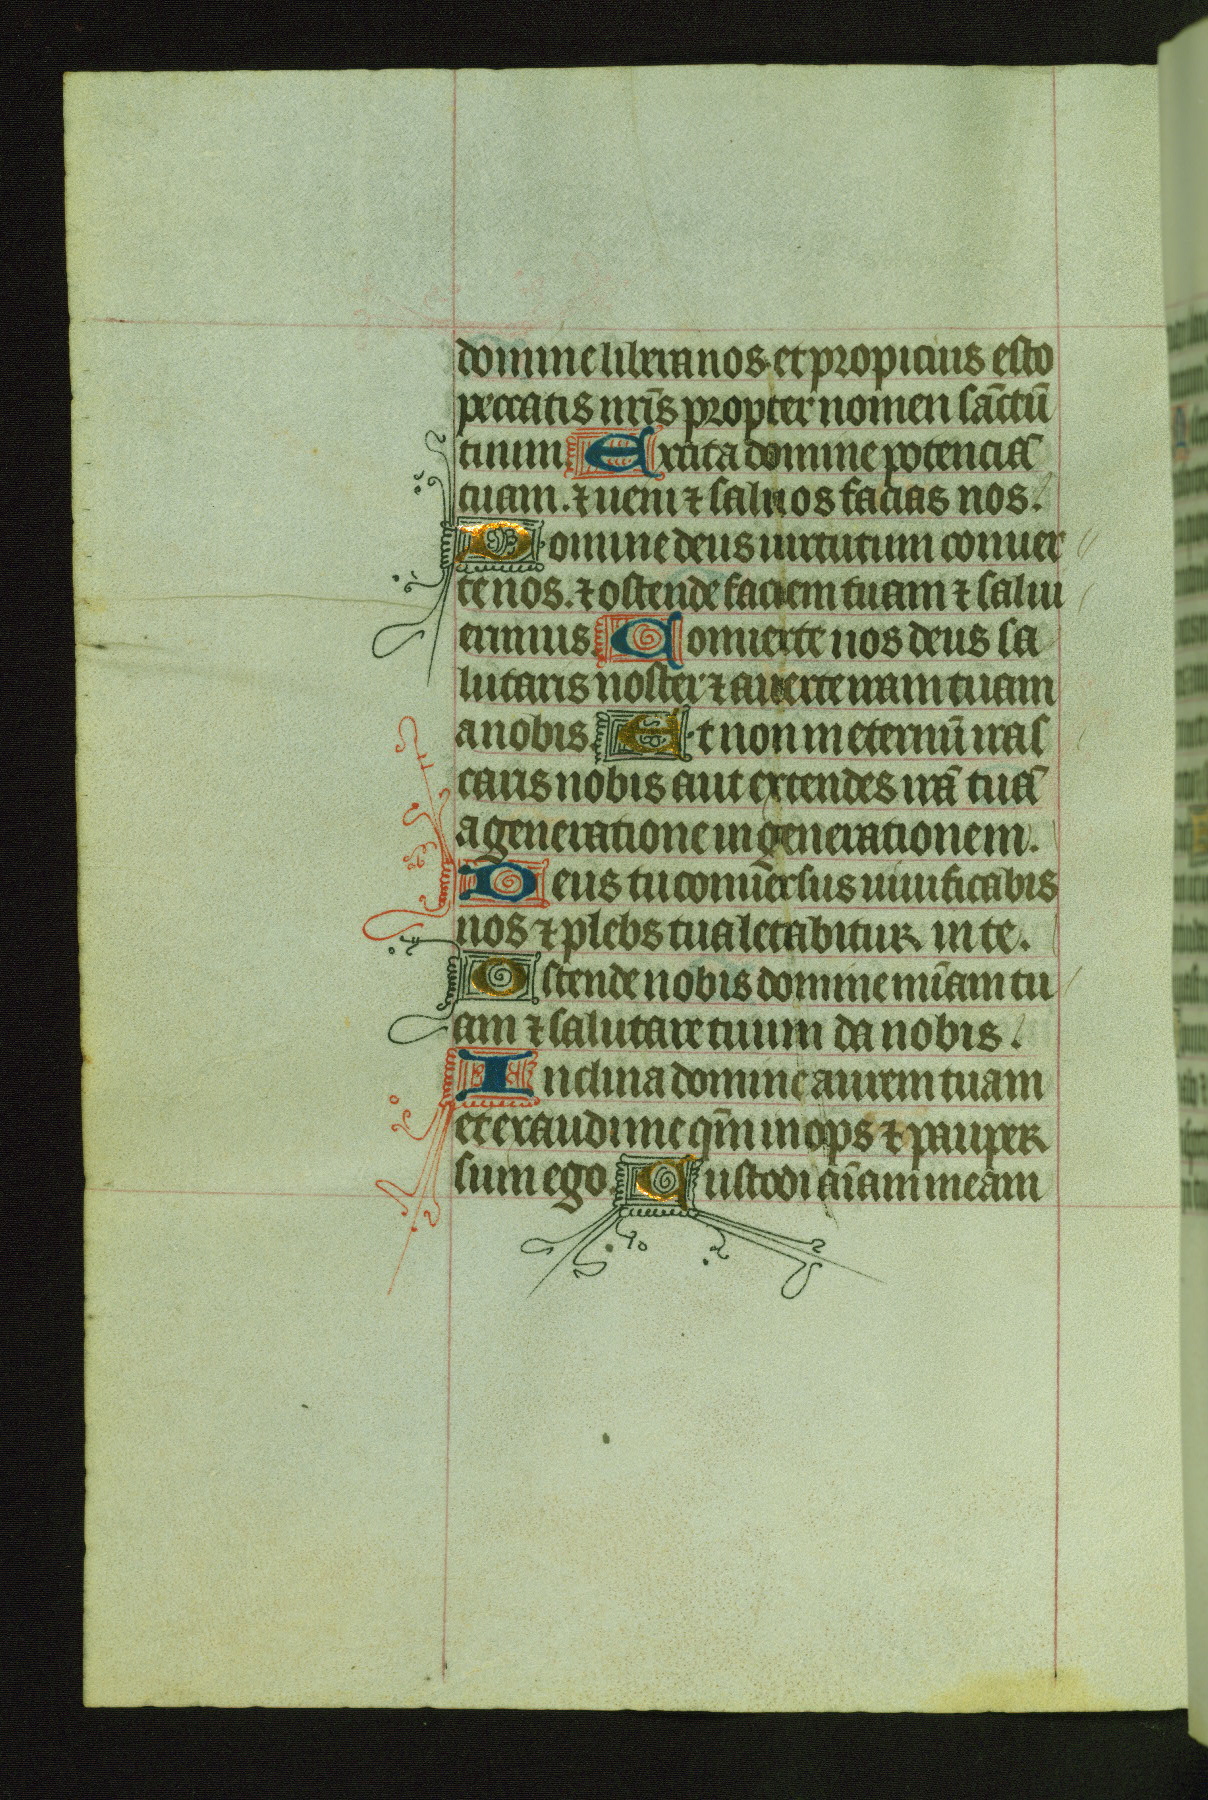 domine libera nos et propicius esto
peccatis nr̄is propter nomen sāctū
tuum Excita domine potenciā
tuam. ⁊ ueni ⁊ saluos facias nos.
Domine deus uirtutum conuer
te nos. ⁊ ostende faciem tuam ⁊ salui
erimus. Conuerte nos deus sa
lutaris noster ⁊ auerte iram tuam
a nobis. Et non in eternū iras
caris nobis aut extendes irā tuā
a generatione in generationem.
Deus tu conuersus uiuificabis
nos ⁊ plebs tua letabitur in te.
Ostende nobis domine mīam tu
am ⁊ salutare tuum da nobis.
Inclina domine aurem tuam
et exaudi me qm̄ inops ⁊ pauper
sum ego. Custodi aīam meam